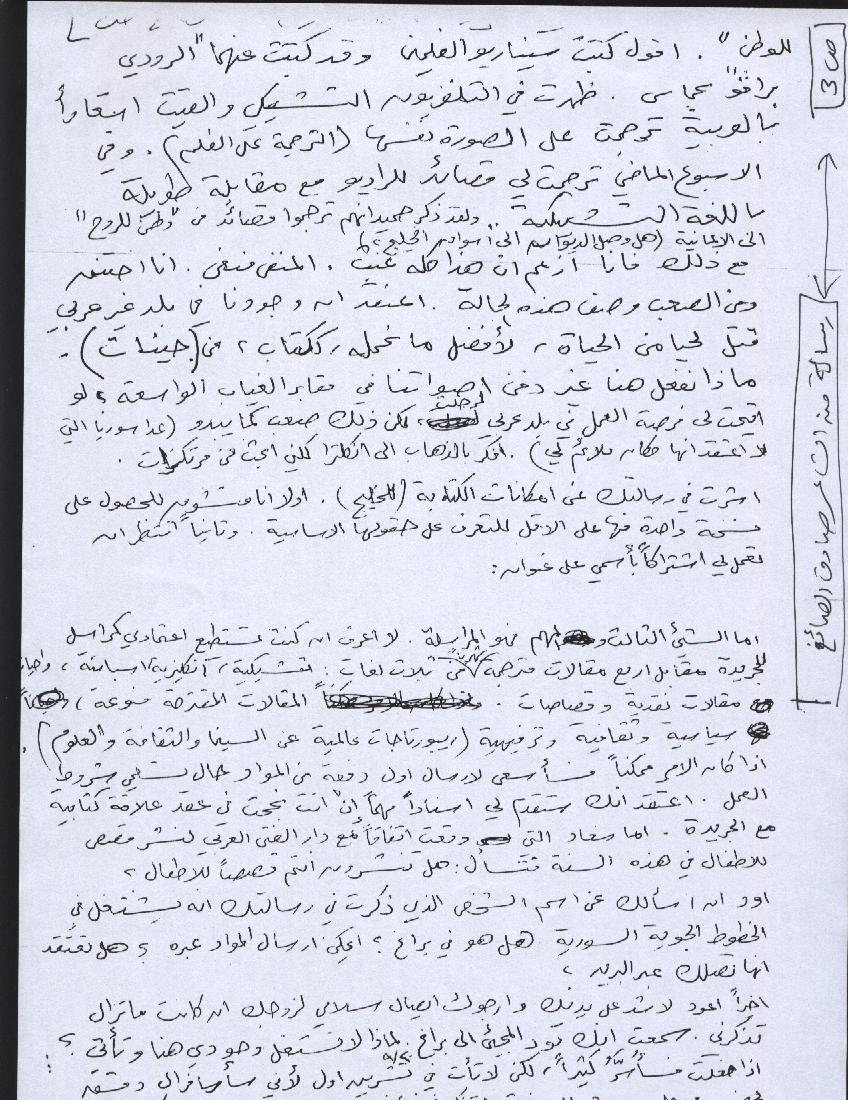 ص 3
رسالة من الشاعر صادق الصائغ
للوطن". اقول كتبت سيناريو الفلمين وقد كتبت عنهما "الرودي
برافو" بحماس. ظهرت في التلفزيون التشيكي والقيت اشعاراً
بالعربية ترجمت على الصورة نفسها (الترجمة على الفلم). وفي
الاسبوع الماضي ترجمت لي قصائد للراديو مع مقابلة طويلة
باللغة التشيكية.. ولقد ذكر حميد انهم ترجموا قصائد من "وطن للروح"
الى الالمانية (هل وصل الديوان الى اسواق الخليج؟)
مع ذلك فانا ازعم ان هذا كله عبث. المنفى منفى. انا اختنق
ومن الصعب وصف هذه الحالة. اعتقد ان وجودنا في بلد غير عربي
قتل لحيامن الحياة، لأفضل ما نحمله، ككتاب، من (جينات).
ماذا نفعل هنا غير دفن اصواتنا في مقابر الغياب الواسعة؟ لو
اتيحت لي فرصة العمل في بلد عربي لرحلت، لكن ذلك صعب كما يبدو (عدا سوريا التي
لا اعتقد انها مكان ملائم لي). افكر بالذهاب الى انكلترا لكني ابحث عن مرتكزات.
اشرت في رسالتك عن امكانات الكتابة (للخليج). اولا انا متشوق للحصول على
نسخة واحدة منها على الاقل للتعرف على حقولها الاساسية. وثانياً انتظر ان
تعمل لي اشتراكاً بأسمي على عنوان:
اما الشئ الثالث والمهم فهو المراسلة. لا اعرف ان كنت تستطيع اعتمادي كمراسل
للجريدة مقابل اربع مقالات مترجمة عن ثلاث لغات: تشيكية، انكليزية، اسبانية،
مقالات نقدية وقصاصات. المقالات المقترحة منوعة،
سياسية وثقافية وترفيهية (ريبورتاجات عالمية عن السينما والثقافة والعلوم).
اذا كان الامر ممكناً فسأسعى لارسال اول دفعة من المواد حال تسلمي شروط
العمل. اعتقد انك ستقدم لي اسناداً مهماً إن انت نجحت في عقد علاقة كتابية
مع الجريدة. اما سعاد التي وقعت اتفاقاً مع دار الفتى العربي لنشر قصص
للاطفال في هذه السنة فتسأل: هل تنشرون انتم قصصاً للاطفال؟
اود ان اسألك عن اسم الشخص الذي ذكرت في رسالتك انه يشتغل في
الخطوط الجوية السورية هل هو في براغ؟ ايمكن ارسال المواد عبره؟ هل تعتقد
انها تصلك عبر البريد؟
اخيراً اعود لاشد على يديك وارجوك ايصال سلامي لزوجك ان كانت ماتزال
تذكرني. سمعت انك تود المجيئ الى براغ. لماذا لا تستغل وجودي هنا وتأتي؟
اذا فعلت فسأُسَرُّ كثيراً، لكن لا تأت في تشرين اول لأني سأسافر الى دمشق